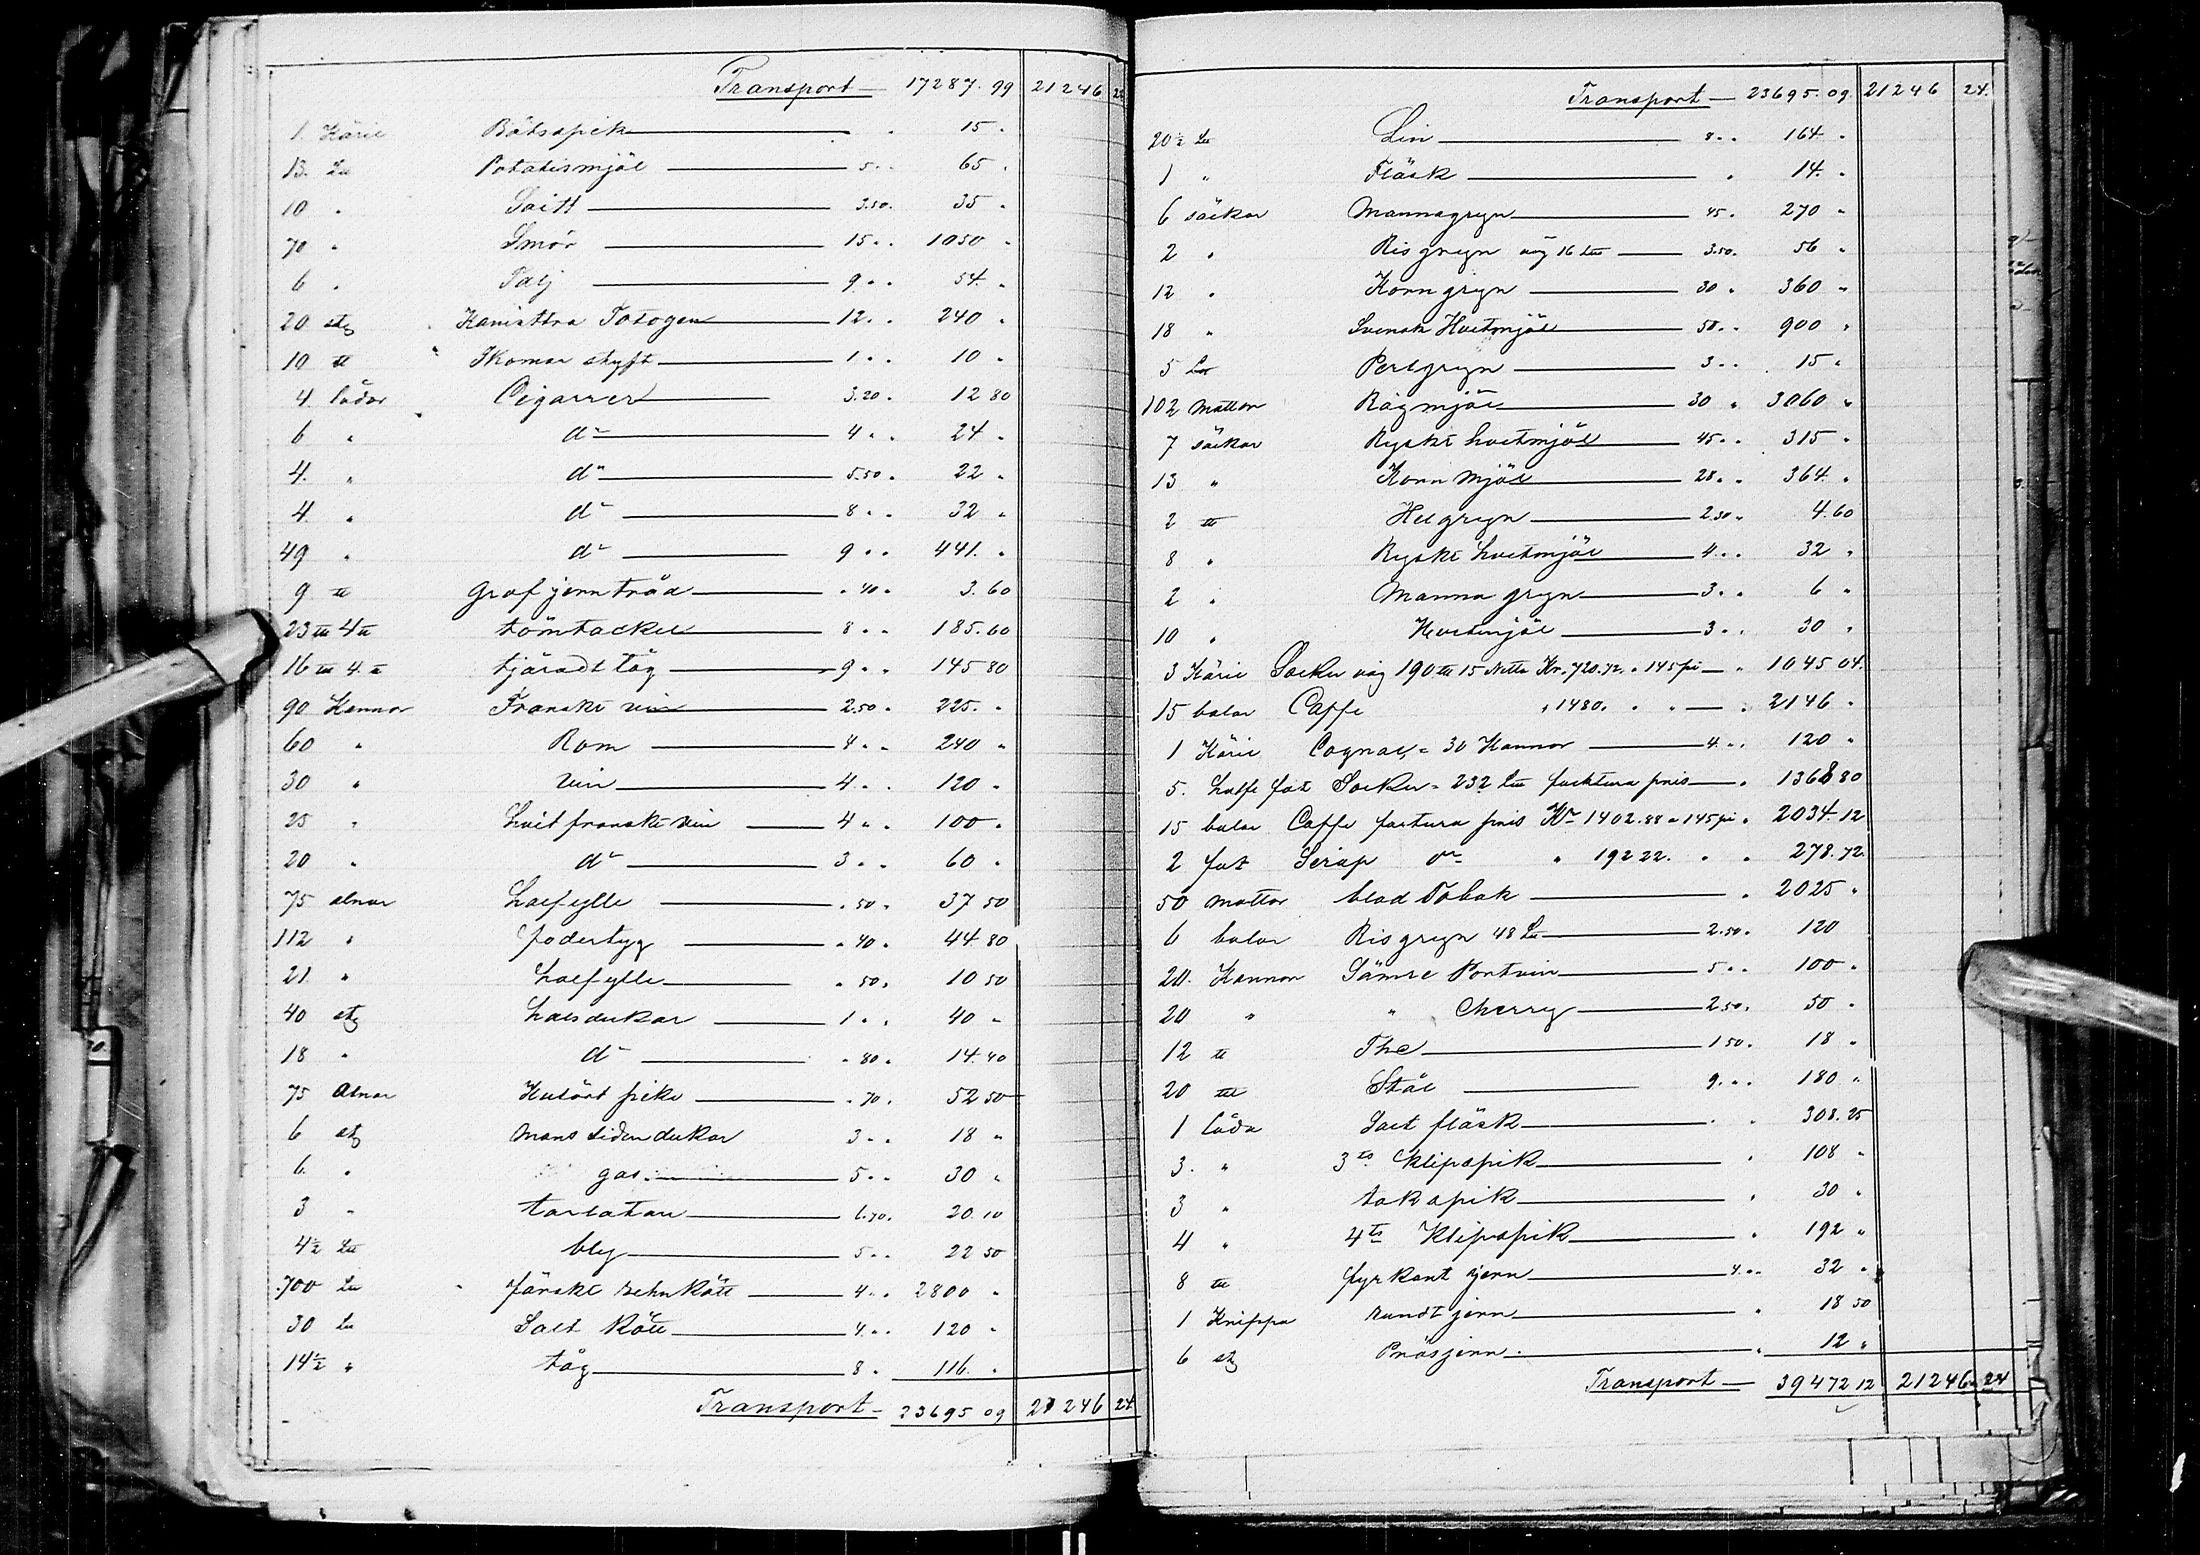 Transport — 17287.99 21246 24
1 Kärl Båtsspik — " 15 "
13 Lu Potatismjöl — 5 " 65 "
10 " Salt — 3.50 " 35 "
70 " Smör — 15 " 1050 "
6 " Talj — 9 " 54 "
20 sty Kanistra Fotogen — 12 " 240 "
10 u Skomar styft — 1 " 10 "
4 lådor Cigarrer — 3.20 " 12 80
6 " do — 4 " 24 "
4 " do — 5.50 " 22 "
4 " do — 8 " 32 "
49 " do — 9 " 441 "
9 u grof jerntråd — " 40 " 3.60
23 4 u tömtackel — 8 " 185.60
16 4 u tjäradt tåg — 9 " 145 80
90 Kannor Franskt vin — 2.50 " 225 "
60 " Rom — 4 " 240 "
30 " vin — 4 " 120 "
25 " hvit franskt vin — 4 " 100 "
20 " do — 3 " 60 "
75 alnar halfylle — " 50 " 37 50
112 " fodertyg — " 40 " 44 80
21 " halfylle — " 50 " 10 50
40 sty halsdukar — 1 " 40 "
18 " do — " 80 " 14.40
75 alnar Kulört pike — " 70 " 52 50
6 sty mans sidendukar 3 " 18 "
6 " gas — 5 " 30 "
3 " tarlatan — 6.70 " 20.10
4½ Lu bly — 5 " 22 50
700 Lu färskt rehnkött — 4 " 2800 "
30 Lu Salt kött — 4 " 120 "
14½ " tåg — 8 " 116 "
Transport — 23695 09 21246 24
Transport — 23695.09 21246 24
20½ Lu Lin — 8 " 164 "
1 " Fläsk — " 14 "
6 säckar Mannagryn — 45 " 270 "
2 " Risgryn väg 16 Lu — 3.50 " 56 "
12 " Korngryn — 30 " 360 "
18 " Svensk Hvetmjöl — 50 " 900 "
5 Lu Perlgryn — 3 " 15 "
102 mattor Rågmjöl — 30 " 3060 "
7 säckar Ryskt hvetmjöl — 45 " 315 "
13 " Kornmjöl — 28 " 364 "
2 Helgryn — 2.30 " 4.60
8 " Ryskt hvetmjöl — 4 " 32 "
2 " Manna gryn — 3 " 6 "
10 " Hvetmjöl — 3 " 30 "
3 Kärl Socker väg 190 15 Netto Kr. 720.72 " 145 — " 1045 04
15 balar Caffe " 1480 " " — " 2146 "
1 Kärl Cognac = 30 Kannor — 4 " 120 "
5 halfe fat Socker = 232 Lu facktura pris — " 1368 80
15 balar Caffe factura pris Kr 1402.88 " 145 " 2034.12
2 fat Sirap do " 192 22 " " 278.72
50 mattor blad Tobak — " 2025 "
6 balar Risgryn 48 Lu — 2.50 " 120
20 Kannor Sämre Portvin — 5 " 100 "
20 " " Cherry — 2.50 " 50 "
12 u The — 1 50 " 18 "
20 Stål — 9 " 180 "
1 låda Salt fläsk — " 308.25
3 " 3ts Klipspik — " 108 "
3 " takspik — " 30 "
4 " 4ts Klipspik — " 192 "
8 fyrkant jern — 4 " 32 "
1 Knippa rundt jern — " 18 50
6 sty Pnösjern — " 12 "
Transport — 39472 12 21246 24